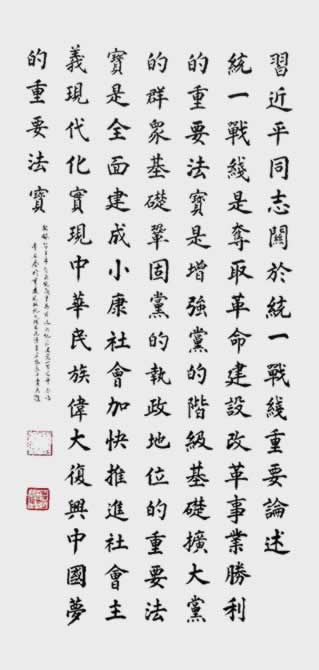 習近平同志關於統一戰綫重要論述
統一戰綫是奪取革命建設改革事業勝利
的重要法寶是增強黨的階級基礎擴大黨
的群衆基礎鞏固黨的執政地位的重要法
寶是全面建成小康社會加快推進社會主
義現代化實現中華民族偉大復興中國夢
的重要法寶